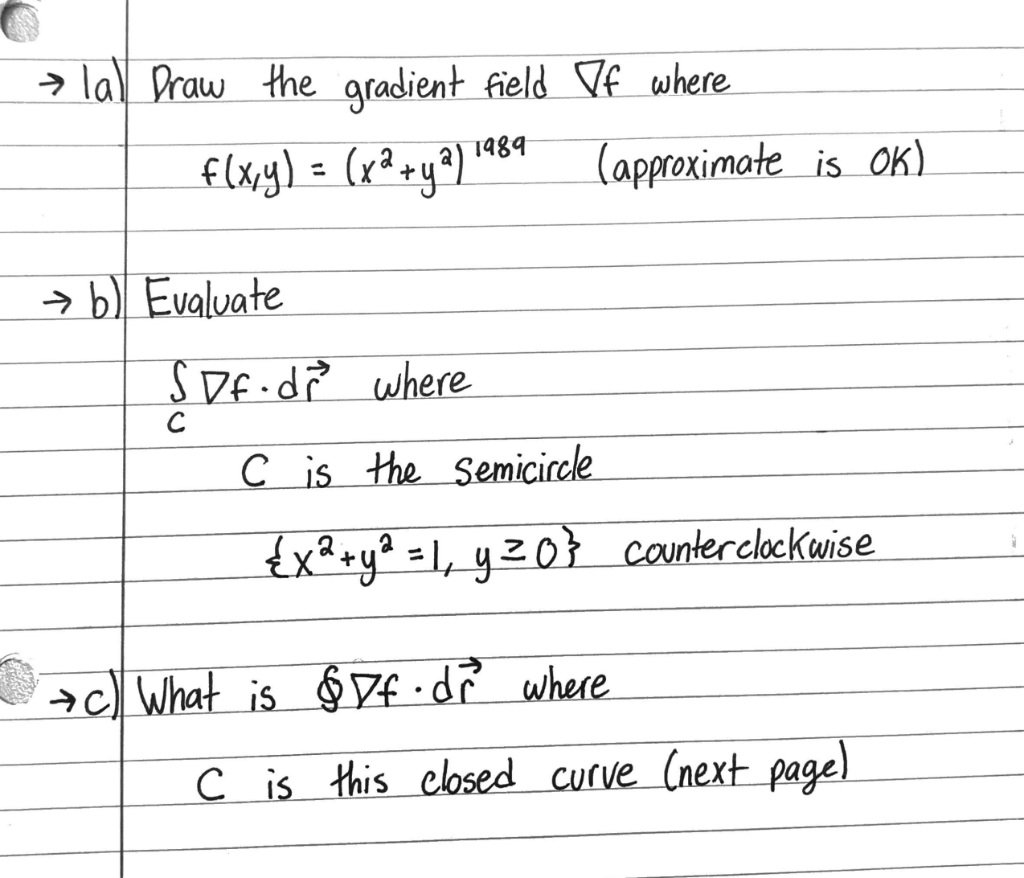 → 1a) Draw the gradient field ∇f where
f(x,y) = (x²+y²)¹⁹⁸⁹ (approximate is OK)
→ b) Evaluate
∫ ∇f · dr⃗ where
C
C is the semicircle
{x²+y²=1, y≥0} counterclockwise
→ c) What is ∮ ∇f · dr⃗ where
C is this closed curve (next page)